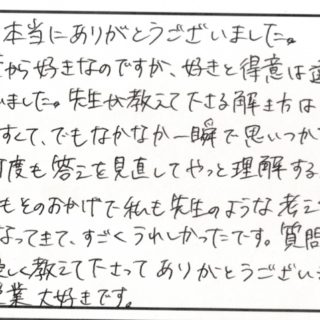 本当にありがとうございました。
から好きなのですが、好きと得意は
いました。先生が教えて下さる解き方は
すくて、でもなかなか一瞬で思いつか
度も答えを見直してやっと理解する
もそのおかげで私も先生のような考え
なってきて、すごくうれしかったです。質問
しく教えて下さってありがとうござい
業大好きです。